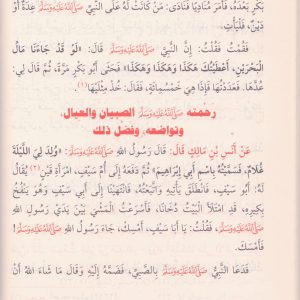 بَكْرٍ بَعْدَهُ، فَأَمَرَ مُنَادِيًا فَنَادَى: مَنْ كَانَتْ لَهُ عَلَى النَّبِيِّ ﷺ عِدَةٌ أَوْ
دَيْنٌ، فَلْيَأْتِ.
فَقُمْتُ فَقُلْتُ: إِنَّ النَّبِيَّ ﷺ قَالَ: «لَوْ قَدْ جَاءَنَا مَالُ
الْبَحْرَيْنِ، أَعْطَيْتُكَ هَكَذَا وَهَكَذَا وَهَكَذَا» فَحَثَى أَبُو بَكْرٍ مَرَّةً، ثُمَّ قَالَ لِي:
عُدَّهَا. فَعَدَدْتُهَا فَإِذَا هِيَ خَمْسُمِائَةٍ، فَقَالَ: خُذْ مِثْلَيْهَا (١).
رحمته ﷺ الصبيان والعيال،
وتواضعه، وفضل ذلك
عَنْ أَنَسِ بْنِ مَالِكٍ قَالَ: قَالَ رَسُولُ اللهِ ﷺ: «وُلِدَ لِيَ اللَّيْلَةَ
غُلَامٌ، فَسَمَّيْتُهُ بِاسْمِ أَبِي إِبْرَاهِيمَ» ثُمَّ دَفَعَهُ إِلَى أُمِّ سَيْفٍ، امْرَأَةِ قَيْنٍ (٢) يُقَالُ
لَهُ: أَبُو سَيْفٍ، فَانْطَلَقَ يَأْتِيهِ وَاتَّبَعْتُهُ، فَانْتَهَيْنَا إِلَى أَبِي سَيْفٍ وَهُوَ يَنْفُخُ
بِكِيرِهِ، قَدِ امْتَلَأَ الْبَيْتُ دُخَانًا، فَأَسْرَعْتُ الْمَشْيَ بَيْنَ يَدَيْ رَسُولِ اللهِ
ﷺ، فَقُلْتُ: يَا أَبَا سَيْفٍ، أَمْسِكْ، جَاءَ رَسُولُ اللهِ ﷺ!
فَأَمْسَكَ.
فَدَعَا النَّبِيُّ ﷺ بِالصَّبِيِّ، فَضَمَّهُ إِلَيْهِ وَقَالَ مَا شَاءَ اللهُ أَنْ